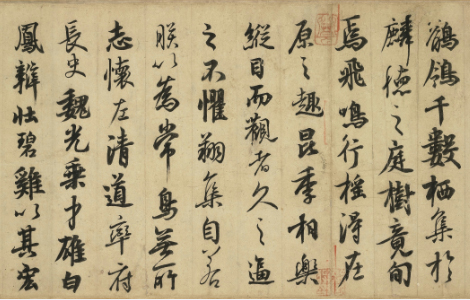 鶺鴒千數栖集於
麟德之庭樹竟旬
焉飛鳴行搖得在
原之趣昆季相樂
縱目而觀者久之逼
之不懼翔集自若
朕以爲常鳥無所
志懷左清道率府
長史魏光乘才雄白
鳳辯壯碧雞以其宏